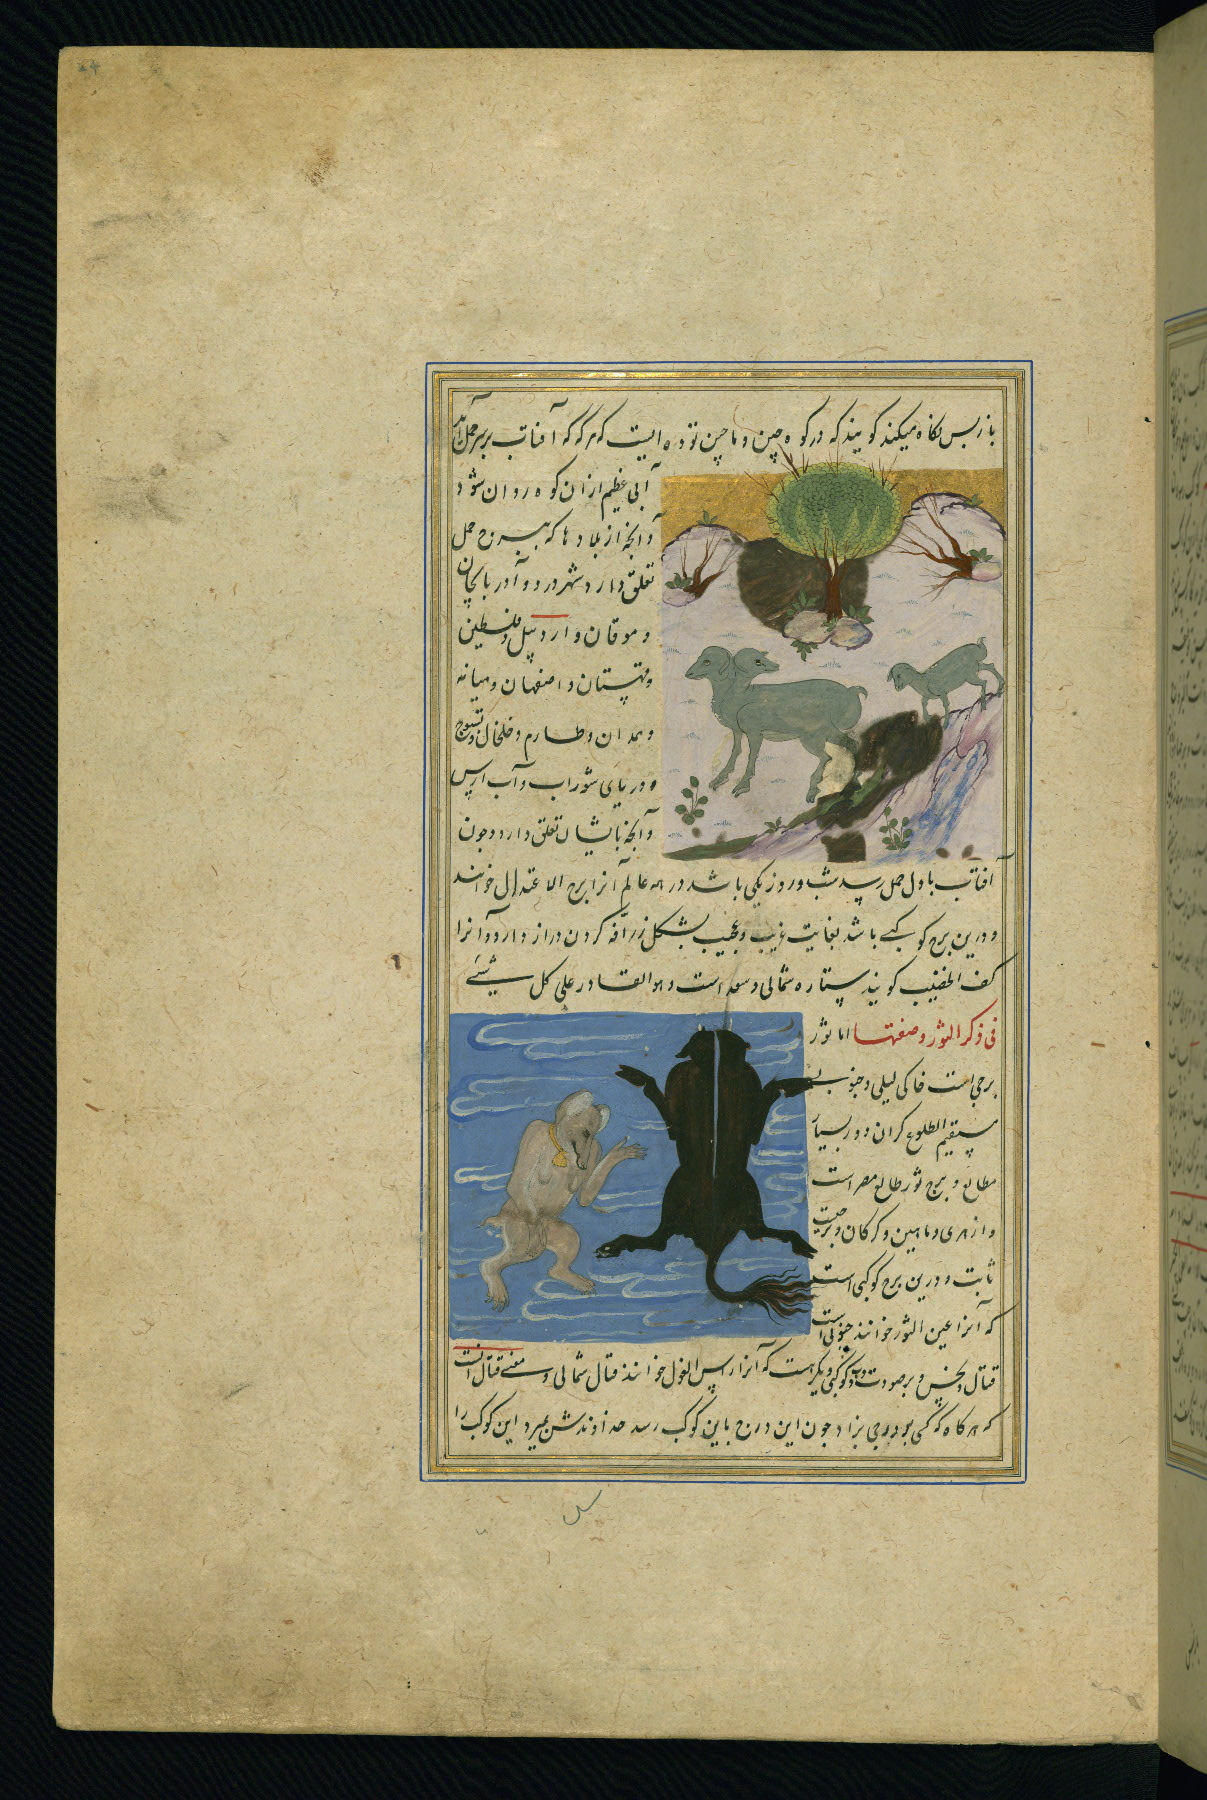 باز پس نگاه میکند گویند که در کوه چین و ماچین توده ایست که هرگه که آفتاب بر سر حمل آید
آبی عظیم از ان کوه روان شود
و آنچه از بلادها که ببرج حمل
تعلق دارد شهرزور و آذربایجان
و موقان و اردبیل و فلسطین
و قهستان و اصفهان و میانه
و همدان و طارم و خلخال و
و دریای شوراب و آب ارس
و آنچه بایشان تعلق دارد و چون
آفتاب باول حمل رسد شب و روز یکی باشد در همه عالم آنرا برج الاعتدال خوانند
و درین برج کوکبی باشد بغایت غریب و عجیب بشکل زرافه گردن دراز دارد و آنرا
کف الخضیب گویند ستاره شمالی و سعد است و هو القادر علی کل شیئ
فی ذکر الثور و صفتها اما ثور
برجی است خاکی لیلی و جنوبی
مستقیم الطلوع گران دور بسیار
مطالع و برج ثور طالع مصر است
و از هری و ماهین و کرکان و
ثابت و درین برج کوکبی است
که آنرا عین الثور خوانند جنوبی است
قتال و نحس و بر صورت کوکبی دیگر هست که آنرا راس الغول خوانند قتال شمالی و معنی قتال آنست
که هرگاه که کسی بزاد چون این درج باین کوکب رسد خداوندش بمیرد این کوکب را